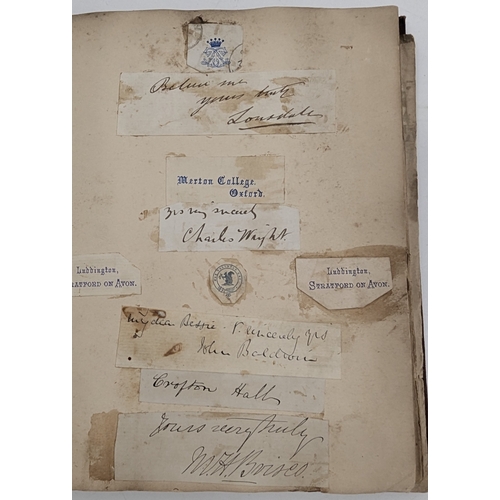 Believe me
yours truly
Lonsdale
Merton College.
Oxford.
yrs very sincerely
Charles Wright.
Luddington,
STRATFORD ON AVON.
Luddington,
STRATFORD ON AVON.
my dear Bessie
sincerely yrs
John Baldwin
Crofton Hall
Yours very truly